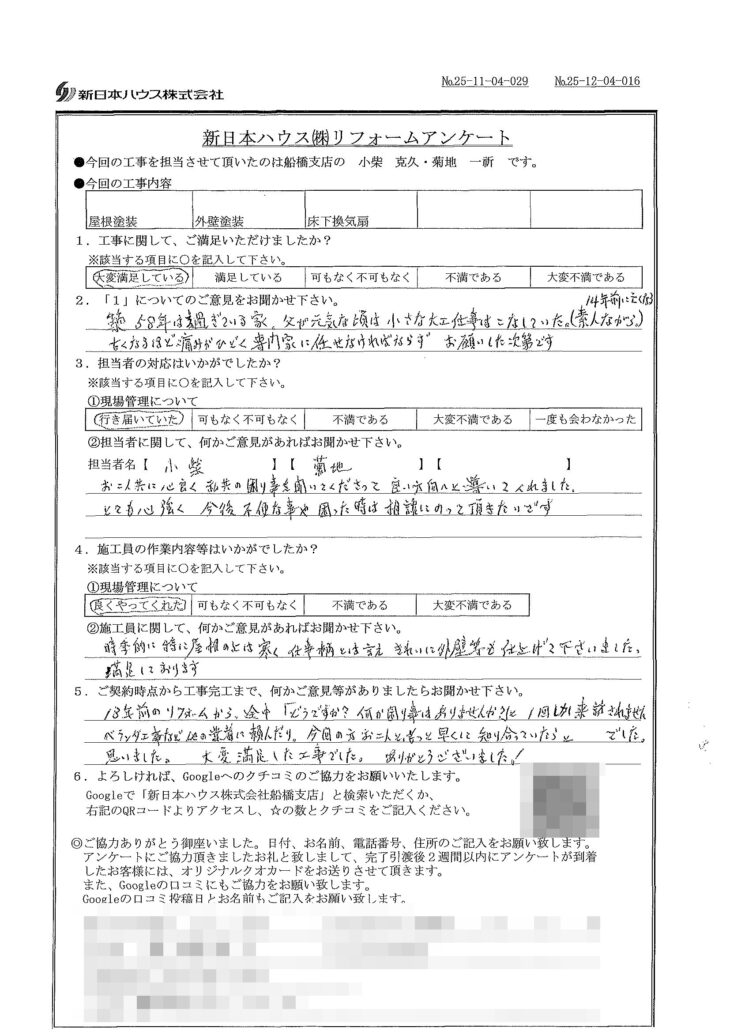 №25-11-04-029 №25-12-04-016
新日本ハウス株式会社
新日本ハウス㈱リフォームアンケート
●今回の工事を担当させて頂いたのは船橋支店の 小柴 克久・菊地 一祈 です。
●今回の工事内容
屋根塗装 外壁塗装 床下換気扇
1．工事に関して、ご満足いただけましたか？
※該当する項目に○を記入して下さい。
大変満足している 満足している 可もなく不可もなく 不満である 大変不満である
2．「1」についてのご意見をお聞かせ下さい。
14年前に亡くなる
築58年は過ぎている家、父が元気な頃は小さな大工仕事はこなしていた。(素人ながら)
古くなるほど痛みがひどく専門家に任せなければならず お願いした次第です
3．担当者の対応はいかがでしたか？
※該当する項目に○を記入して下さい。
①現場管理について
行き届いていた 可もなく不可もなく 不満である 大変不満である 一度も会わなかった
②担当者に関して、何かご意見があればお聞かせ下さい。
担当者名【 小柴 】【 菊地 】【 】
お二人共に心良く 私共の困り事を聞いてくださって 良い方向へと導いてくれました。
とても心強く 今後 不便な事や困った時は相談にのって頂きたいです
4．施工員の作業内容等はいかがでしたか？
※該当する項目に○を記入して下さい。
①現場管理について
良くやってくれた 可もなく不可もなく 不満である 大変不満である
②施工員に関して、何かご意見があればお聞かせ下さい。
時季的に特に屋根の上は寒く 仕事柄とは言え きれいに外壁等も仕上げて下さいました。
満足しております
5．ご契約時点から工事完工まで、何かご意見等がありましたらお聞かせ下さい。
13年前のリフォームから、途中「どうですか？何か困り事はありませんか？」と 1回しか来訪されません
でした。
ベランダ工事など他の業者に頼んだり。今回の方お二人ともっと早くに知り合っていたらと
思いました。 大変満足した工事でした。 ありがとうございました！
6．よろしければ、Googleへのクチコミのご協力をお願いいたします。
Googleで「新日本ハウス株式会社船橋支店」と検索いただくか、
右記のQRコードよりアクセスし、☆の数とクチコミをご記入ください。
◎ご協力ありがとう御座いました。日付、お名前、電話番号、住所のご記入をお願い致します。
アンケートにご協力頂きましたお礼と致しまして、完了引渡後２週間以内にアンケートが到着
したお客様には、オリジナルクオカードをお送りさせて頂きます。
また、Googleの口コミにもご協力をお願い致します。
Googleの口コミ投稿日とお名前もご記入をお願い致します。